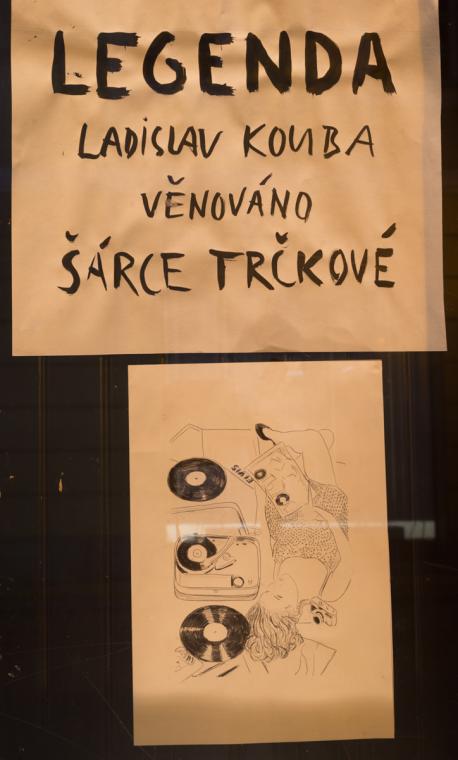 LEGENDA
LADISLAV KOUBA
VĚNOVÁNO
ŠÁRCE TRČKOVÉ
ELVIS